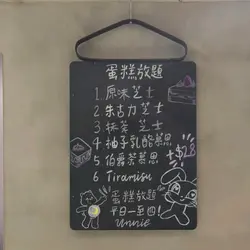 蛋糕放題
1 原味芝士
2 朱古力芝士
3 抹茶芝士
4 柚子乳酪慕思
5 伯爵茶慕思
6 Tiramisu
+$28
蛋糕放題
平日一至四
Unnie